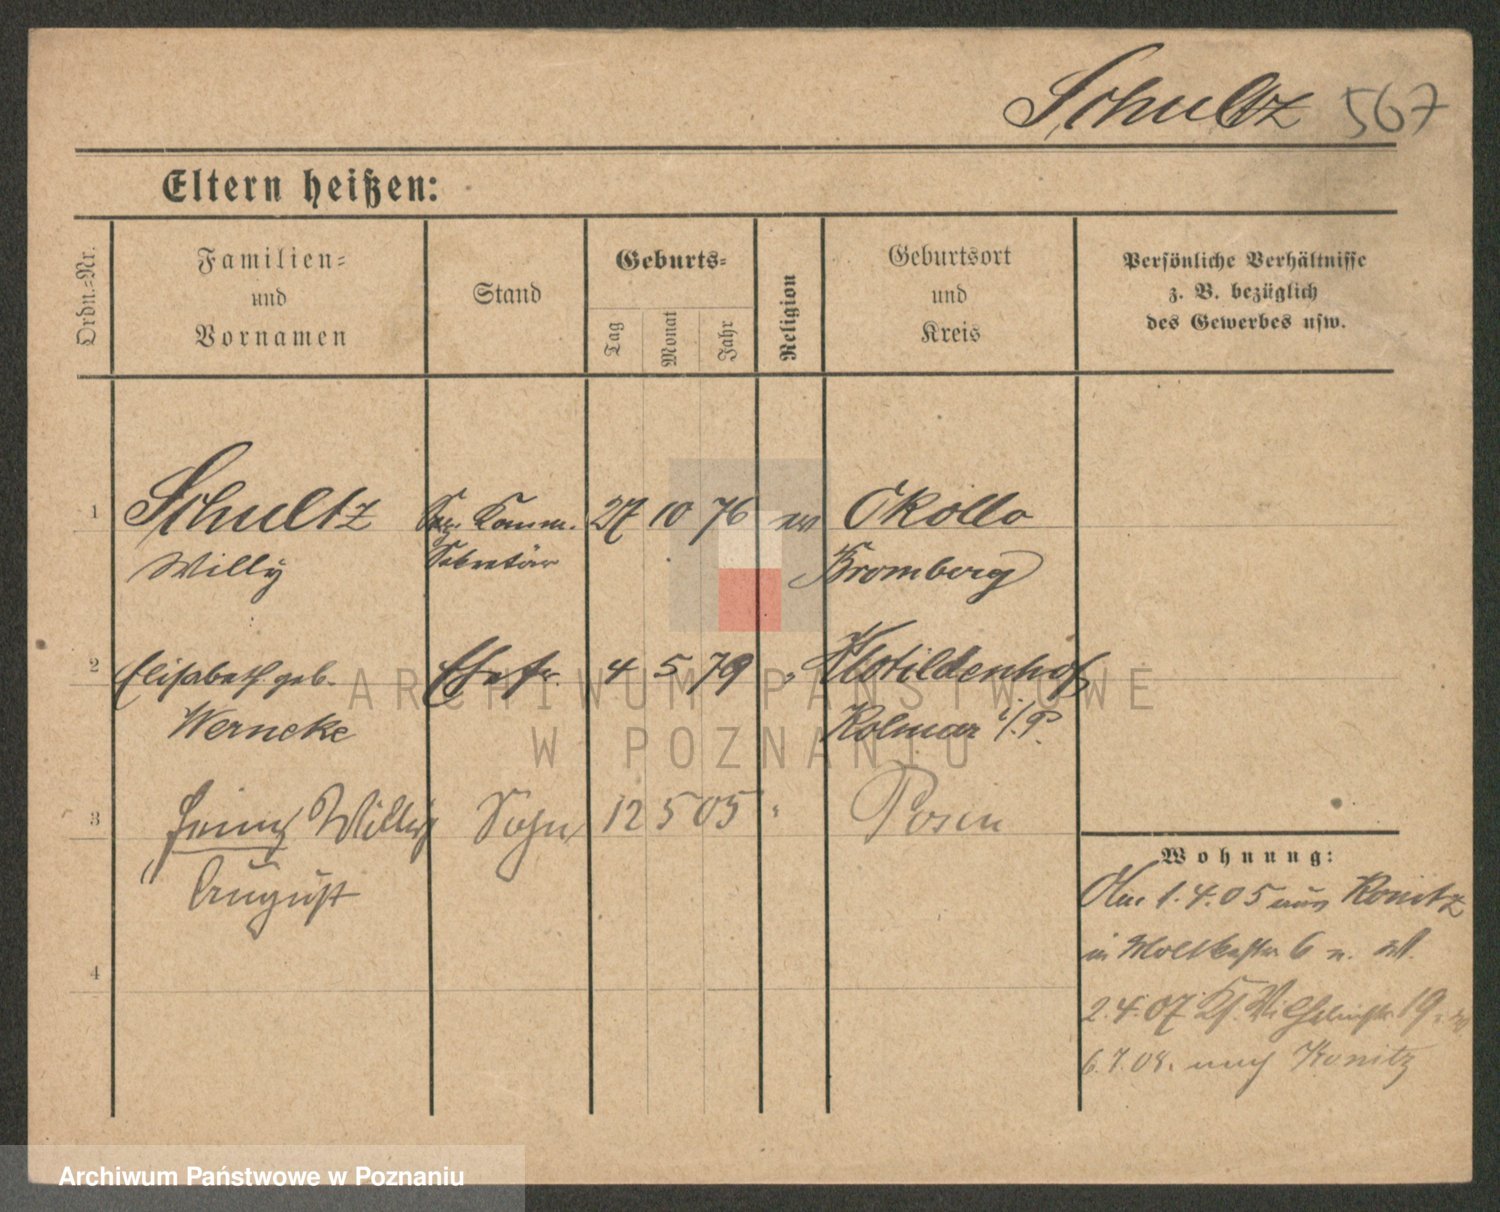 Schultz 567
Eltern heißen:
Ordn.-Nr.
Familien- und Vornamen
Stand
Geburts-
Tag
Monat
Jahr
Religion
Geburtsort und Kreis
Persönliche Verhältnisse
z. B. bezüglich
des Gewerbes usw.
1 Schultz Komm. 27 10 76 ev Okollo
Willy Sekretär Bromberg
2 Elisabeth geb. Ehefr. 4 5 79 " Klotildenhof
Werneke Kolmar i/P.
3 Heinz Willy Sohn 12 5 05 " Posen
August
4
Wohnung:
1.4.05 aus Konitz
in Moltkestr 6 n.
2.4.07 Wilhelmstr. 19
6.7.08. nach Konitz
ARCHIWUM PAŃSTWOWE
W POZNANIU
Archiwum Państwowe w Poznaniu